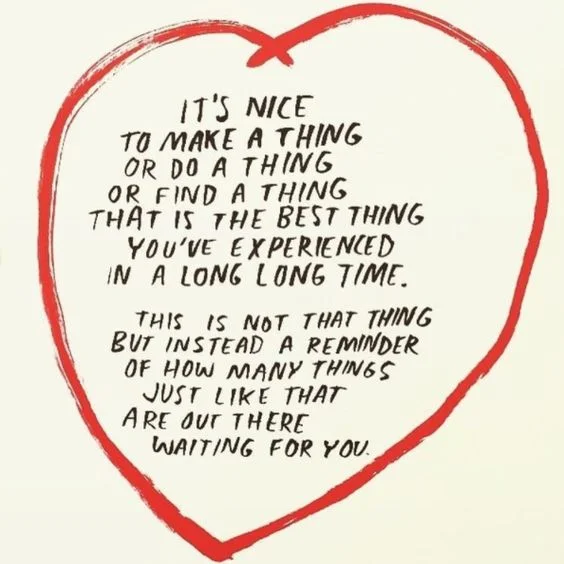 IT'S NICE
TO MAKE A THING
OR DO A THING
OR FIND A THING
THAT IS THE BEST THING
YOU'VE EXPERIENCED
IN A LONG LONG TIME.
THIS IS NOT THAT THING
BUT INSTEAD A REMINDER
OF HOW MANY THINGS
JUST LIKE THAT
ARE OUT THERE
WAITING FOR YOU.